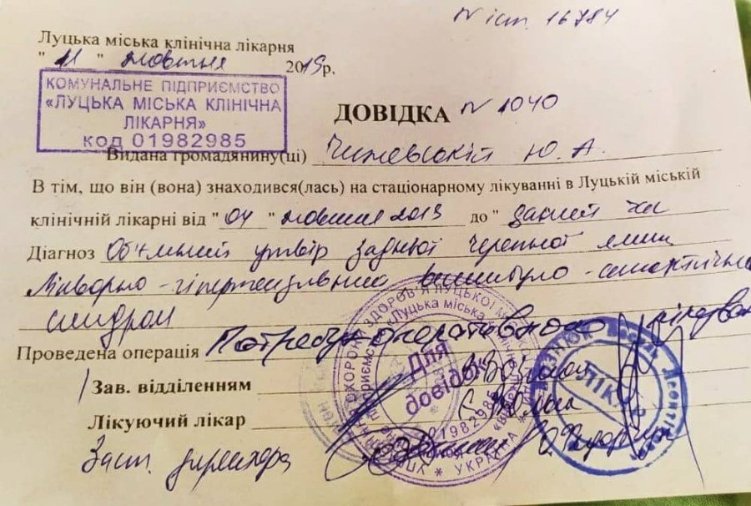 N іст. 16784
Луцька міська клінічна лікарня
" 11 " жовтня 2019р.
КОМУНАЛЬНЕ ПІДПРИЄМСТВО
«ЛУЦЬКА МІСЬКА КЛІНІЧНА
ЛІКАРНЯ»
код 01982985
ДОВІДКА N 1040
Видана громадянину(ці) Ю. А.
В тім, що він (вона) знаходився(лась) на стаціонарному лікуванні в Луцькій міській
клінічній лікарні від " 04 " жовтня 2019 до " даний час
Діагноз Об'ємний утвір задньої черепної ямки
Лікворно-гіпертензивний
синдром
Проведена операція Потребує оперативного
Зав. відділенням
Лікуючий лікар
Заст. директора
Для
довідок
01982985
УКРАЇНА
ЛІКАР